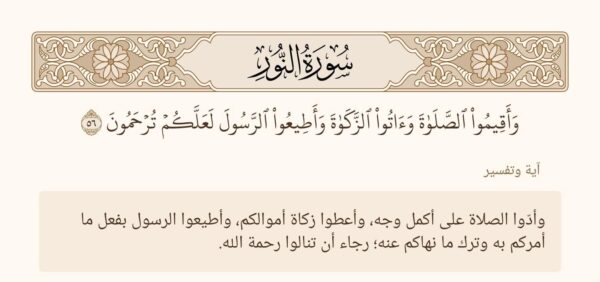 سُورَةُ النُّورِ
وَأَقِيمُوا۟ ٱلصَّلَوٰةَ وَءَاتُوا۟ ٱلزَّكَوٰةَ وَأَطِيعُوا۟ ٱلرَّسُولَ لَعَلَّكُمْ تُرْحَمُونَ ٥٦
آية وتفسير
وأدّوا الصلاة على أكمل وجه، وأعطوا زكاة أموالكم، وأطيعوا الرسول بفعل ما
أمركم به وترك ما نهاكم عنه؛ رجاء أن تنالوا رحمة الله.